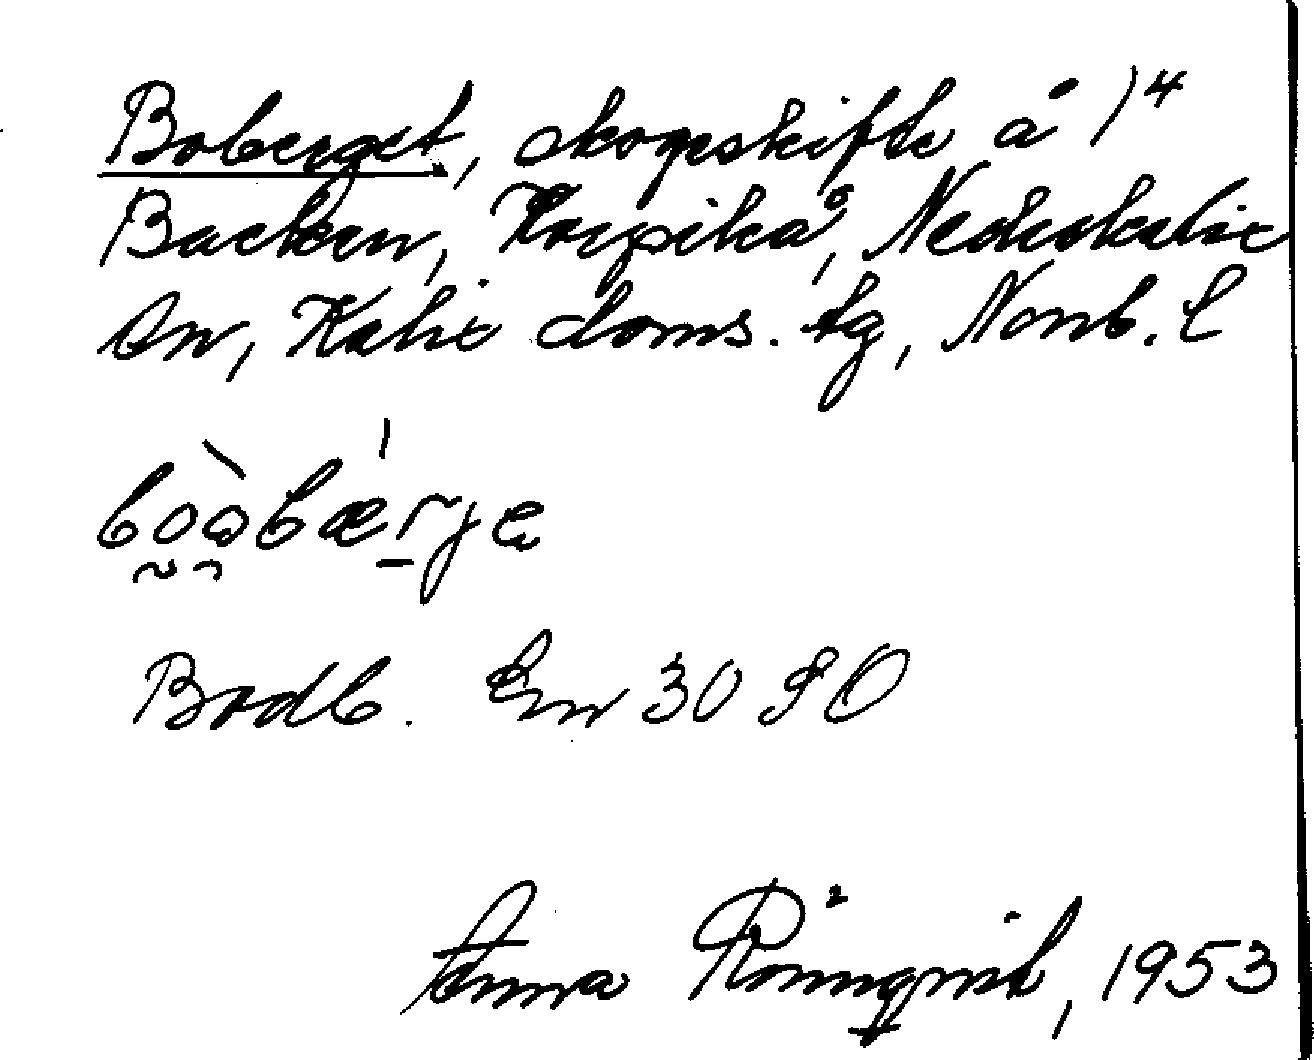 Boberget, skogsskifte å 1⁴
Backen, Korpikå, Nederkalix
sn, Kalix doms. tg, Norrb. l
boòbærje
Bodb. En 30 SO
Anna Rönnqvist, 1953